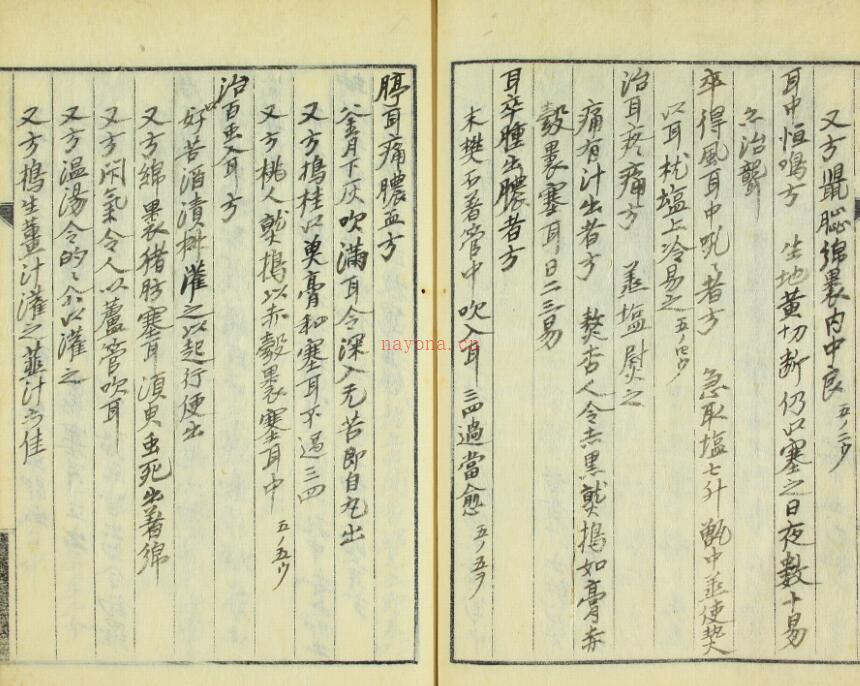 又方 鼠𦛁綿裹內中良 五ノ二ウ
耳中恒鳴方 生地黄切断仍以塞之日夜数十易
亦治聾
卒得風耳中吼々者方 急取塩七升甑中蒸使熱
以耳枕塩上冷易之 五ノ四ウ
治耳疼痛方 蒸塩熨之
痛有汁出者方 熬杏人令赤黒䕩搗如膏赤
穀裹塞耳日二三易
耳卒腫出膿者方
末樊石著管中吹入耳 三四過當愈 五ノ五ヲ
聤耳痛膿血方
釜月下灰吹滿耳令深入无苦即自丸出
又方搗桂以奥膏和塞耳不過三四
又方桃人䕩搗以赤穀裹塞耳中 五ノ五ウ
治百虫入耳方
好苦酒漬椒灌之以起行便出
又方綿裹猪肪塞耳須臾虫死出著綿
又方閇氣令人以蘆管吹耳
又方温湯令的々尒以灌之
又方搗生薑汁灌之韮汁亦佳
nayona.cn